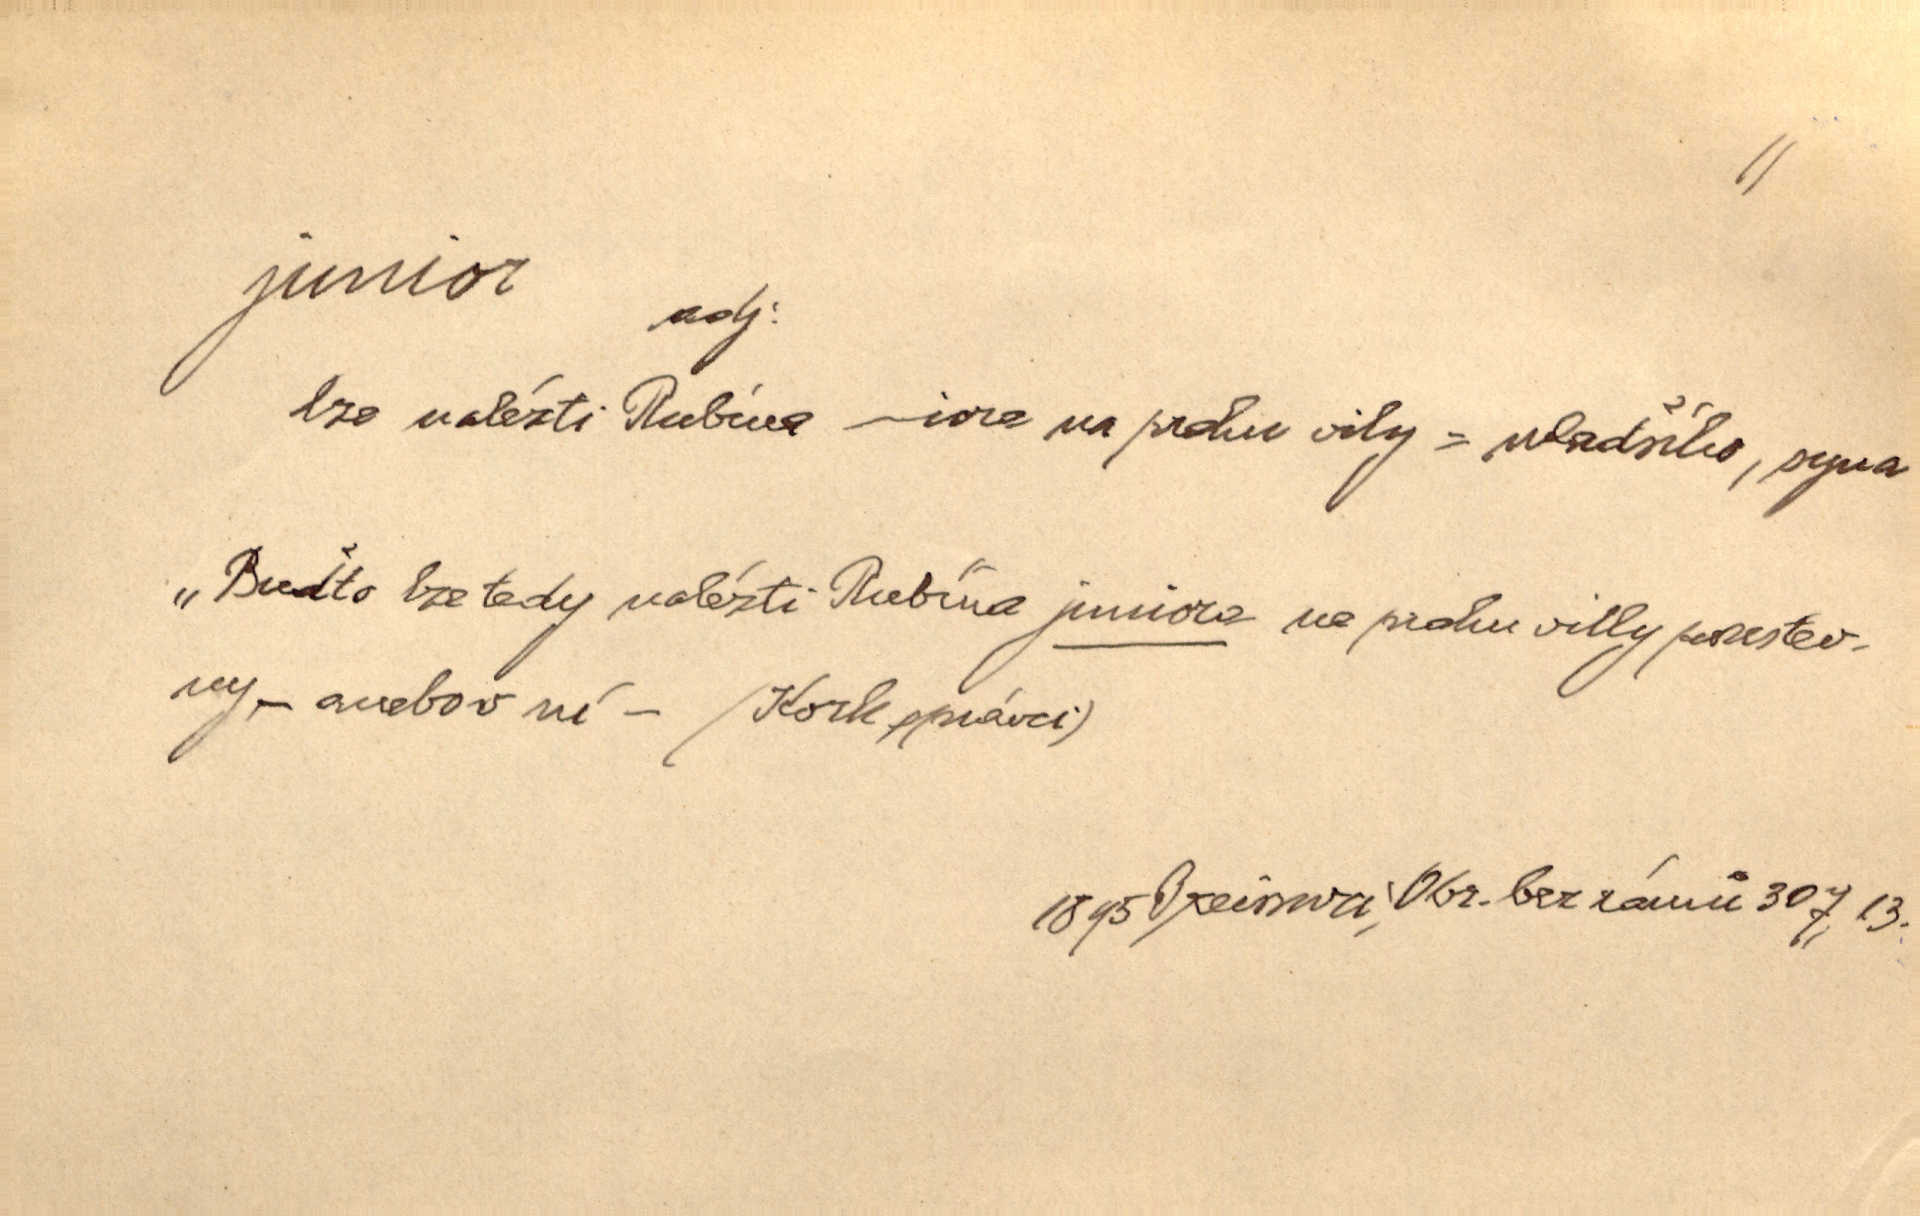 //
junior
adj.
lze nalézti Rubína –iora na prahu vily = mladšího, syna
„Buďto lze tedy nalézti Rubína juniora na prahu villy postav-
ny – anebo v ní – (Kork správci)
1895 Obr. bez rámů 307, 13.